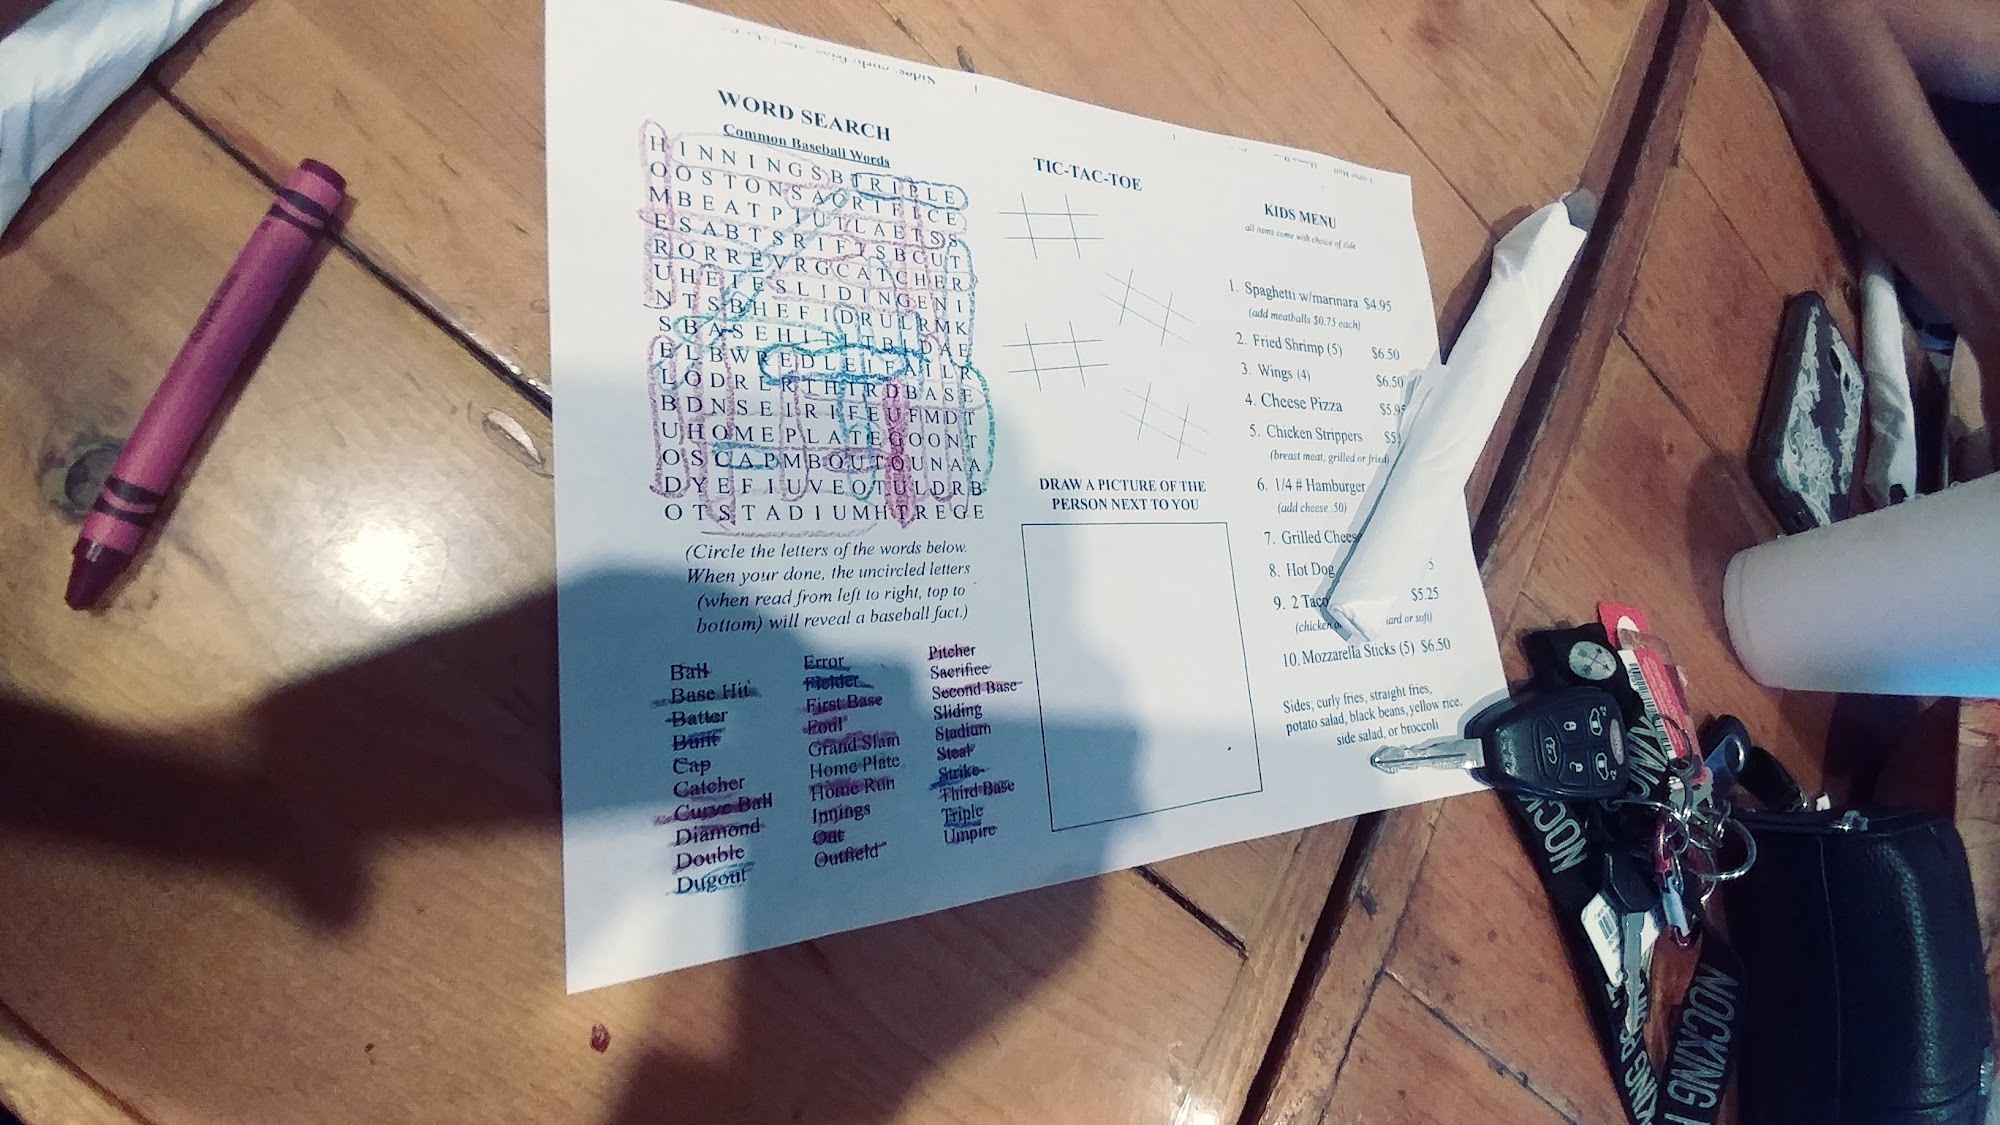 WORD SEARCH
Common Baseball Words
H I N N I N G S B T R I P L E
O O S T O N S A C R I F I C E
M B E A T P I U T L A E T S S
E S A B T S R I F T S B C U T
R O R R E V R G C A T C H E R
U H E I E S L I D I N G E N I
N T S B H E F I D R U L R M K
S B A S E H I T I T B L D A E
E L B W R E D L E I F A I L R
L O D R E R T H I R D B A S E
B D N S E I R I F E U F M D T
U H O M E P L A T E G O O N T
O S C A P M B O U T O U N A A
D Y E F I U V E O T U L D R B
O T S T A D I U M H T R E G E
(Circle the letters of the words below.
When your done, the uncircled letters
(when read from left to right, top to
bottom) will reveal a baseball fact.)
Ball
Base Hit
Batter
Bunt
Cap
Catcher
Curve Ball
Diamond
Double
Dugout
Error
Fielder
First Base
Foul
Grand Slam
Home Plate
Home Run
Innings
Out
Outfield
Pitcher
Sacrifice
Second Base
Sliding
Stadium
Steal
Strike
Third Base
Triple
Umpire
TIC-TAC-TOE
DRAW A PICTURE OF THE
PERSON NEXT TO YOU
KIDS MENU
all items come with choice of side
1. Spaghetti w/marinara $4.95
(add meatballs $0.75 each)
2. Fried Shrimp (5) $6.50
3. Wings (4) $6.50
4. Cheese Pizza $5.95
5. Chicken Strippers $5
(breast meat, grilled or fried)
6. 1/4 # Hamburger
(add cheese .50)
7. Grilled Cheese
8. Hot Dog 5
9. 2 Taco $5.25
(chicken or soft)
10. Mozzarella Sticks (5) $6.50
Sides; curly fries, straight fries,
potato salad, black beans, yellow rice,
side salad, or broccoli
NOCKING
NOCKING